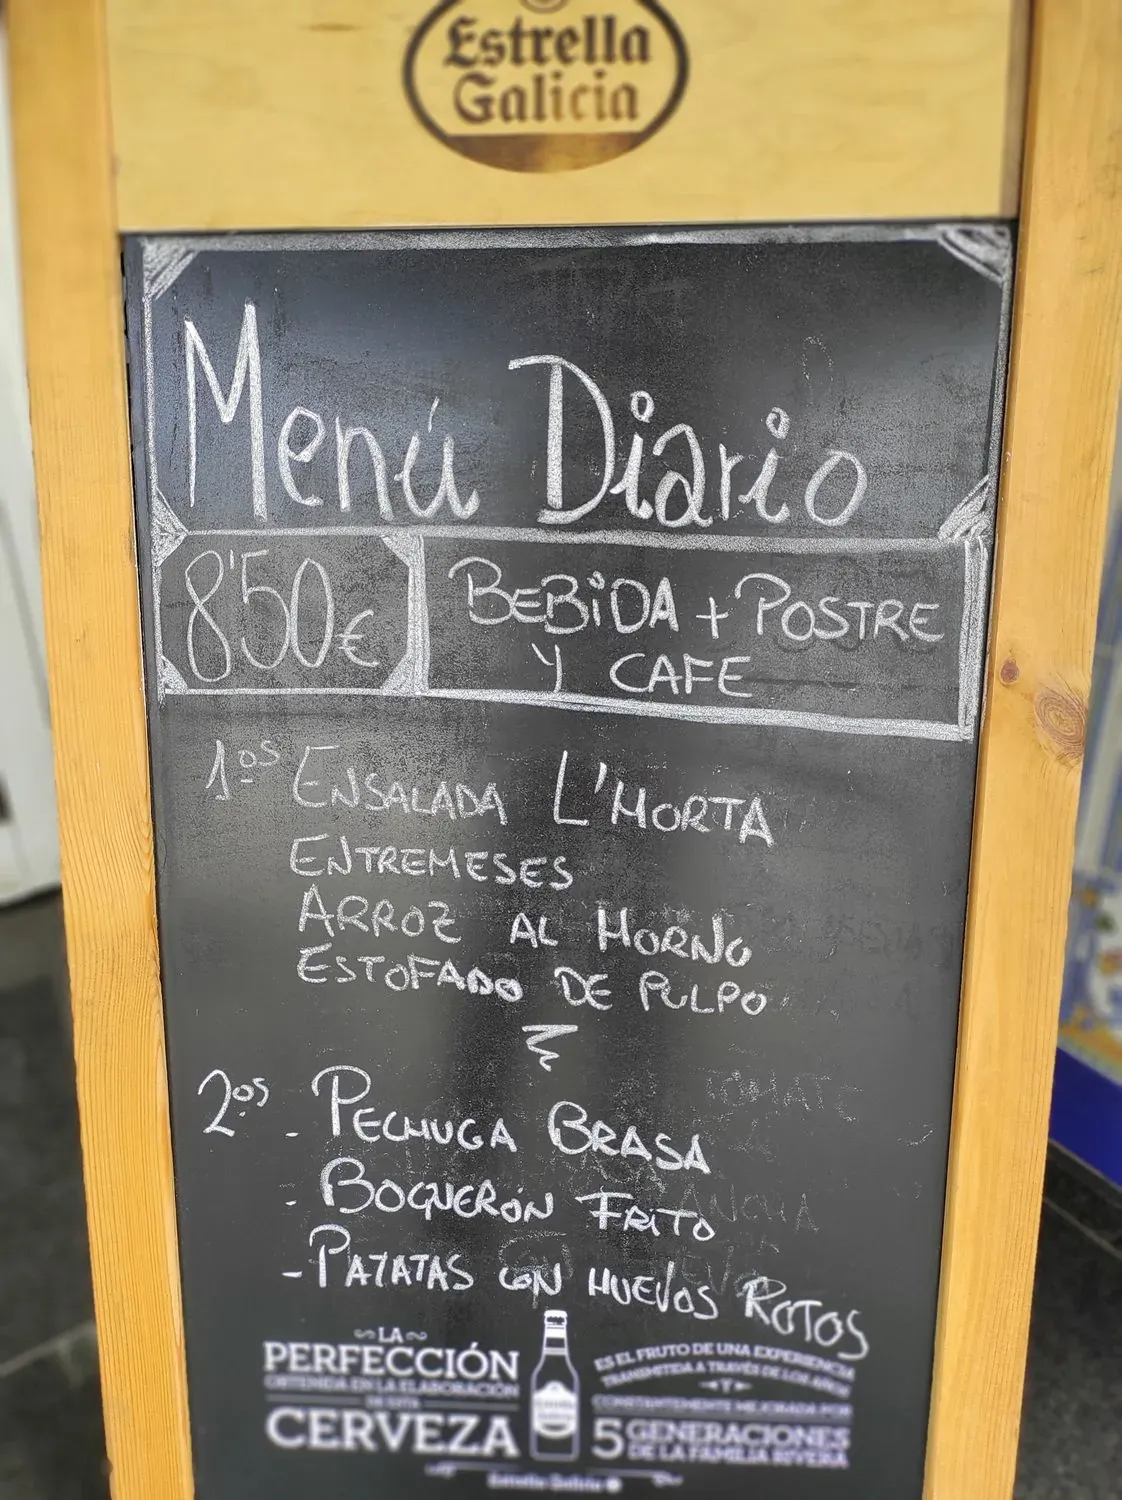 Estrella
Galicia
Menú Diario
8'50€
BEBiDA + POSTRE
Y CAFE
1os ENSALADA L'HORTA
ENTREMESES
ARROZ AL HORNO
ESTOFADO DE PULPO
2os - PECHUGA BRASA
- BOQUERÓN FRiTO
- PATATAS CON HUEVOS ROTOS
LA
PERFECCIÓN
OBTENIDA EN LA ELABORACIÓN
DE ESTA
CERVEZA
ES EL FRUTO DE UNA EXPERIENCIA
TRANSMITIDA A TRAVÉS DE LOS AÑOS
Y
CONSTANTEMENTE MEJORADA POR
5 GENERACIONES
DE LA FAMILIA RIVERA
Estrella Galicia